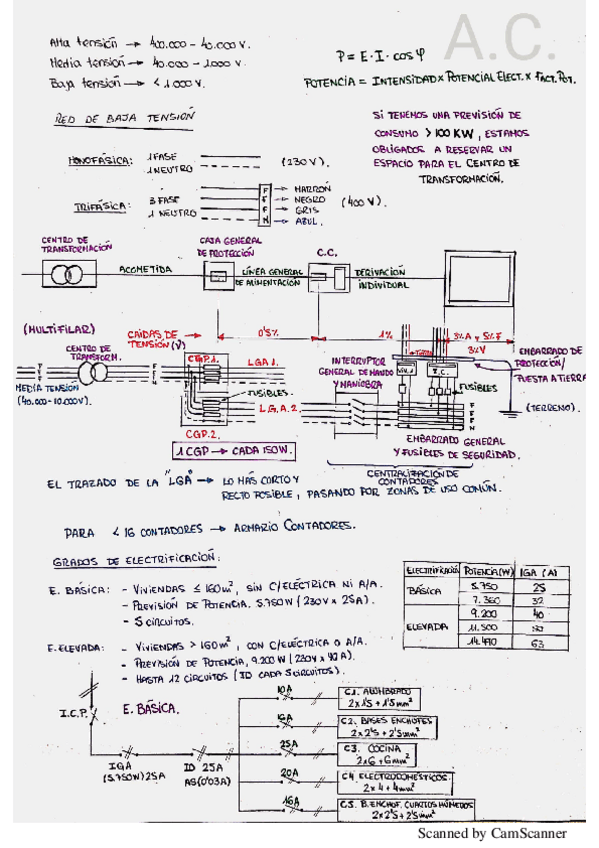 A.C.
Alta tensión → 400.000 - 40.000 v.
Media tensión → 40.000 - 1.000 v.
Baja tensión → < 1.000 v.
P = E · I · cos φ
POTENCIA = INTENSIDAD x POTENCIAL ELECT. x FACT. POT.
RED DE BAJA TENSIÓN
SI TENEMOS UNA PREVISIÓN DE
CONSUMO > 100 KW, ESTAMOS
OBLIGADOS A RESERVAR UN
ESPACIO PARA EL CENTRO DE
TRANSFORMACIÓN.
MONOFÁSICA: 1 FASE
1 NEUTRO
(230 V).
TRIFÁSICA: 3 FASE
1 NEUTRO
F → MARRÓN
F → NEGRO
F → GRIS
N → AZUL.
(400 V).
CENTRO DE
TRANSFORMACIÓN
ACOMETIDA
CAJA GENERAL
DE PROTECCIÓN
LÍNEA GENERAL
DE ALIMENTACIÓN
C.C.
DERIVACIÓN
INDIVIDUAL
(MULTIFILAR)
CAÍDAS DE
TENSIÓN (V)
0'5%
1%
3% A y 5% F
3% V
CENTRO DE
TRANSFORM.
MEDIA TENSIÓN
(40.000-10.000V).
CGP.1.
LGA 1.
FUSIBLES.
L.G.A.2.
CGP.2.
1 CGP → CADA 150W.
INTERRUPTOR
GENERAL DE MANDO
Y MANIOBRA
T.C.
FUSIBLES
F
F
F
N
EMBARRADO DE
PROTECCIÓN/
PUESTA A TIERRA
(TERRENO).
EMBARRADO GENERAL
Y FUSIBLES DE SEGURIDAD.
CENTRALIZACIÓN DE
CONTADORES
EL TRAZADO DE LA "LGA" → LO MÁS CORTO Y
RECTO POSIBLE, PASANDO POR ZONAS DE USO COMÚN.
PARA < 16 CONTADORES → ARMARIO CONTADORES.
GRADOS DE ELECTRIFICACIÓN:
E. BÁSICA: - VIVIENDAS ≤ 160m², SIN C/ELÉCTRICA NI A/A.
- PREVISIÓN DE POTENCIA. 5.750W (230V x 25A).
- 5 CIRCUITOS.
E. ELEVADA: - VIVIENDAS > 160m², CON C/ELÉCTRICA O A/A.
- PREVISIÓN DE POTENCIA, 9.200 W (230V x 40A).
- HASTA 12 CIRCUITOS (ID CADA 5 CIRCUITOS).
ELECTRIFICACIÓN POTENCIA (W) IGA (A)
BÁSICA 5.750 25
7.360 32
ELEVADA 9.200 40
11.500 50
14.490 63
I.C.P.
E. BÁSICA.
IGA
(5.750W) 25A
ID 25A
AS(0'03A)
10A C1. ALUMBRADO
2x1'5 + 1'5mm²
16A C2. BASES ENCHUFES
2x2'5 + 2'5mm²
25A C3. COCINA
2x6 + 6mm²
20A C4. ELECTRODOMÉSTICOS
2x4 + 4mm²
16A C5. B.ENCHUF. CUARTOS HÚMEDOS
2x2'5 + 2'5mm²
Scanned by CamScanner